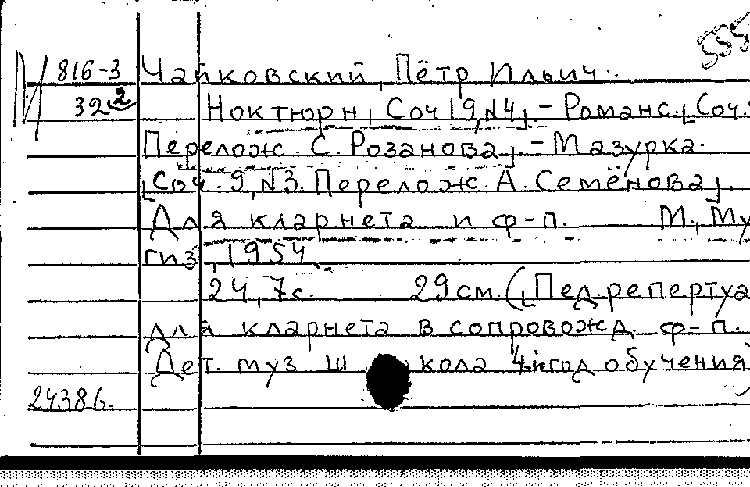 555
816-3 Чайковский, Пётр Ильич.
32 2 Ноктюрн, Соч 19, №4]. - Романс. [Соч.
Перелож. С. Розанова]. - Мазурка.
[Соч. 9, №3. Перелож. А. Семёнова].
Для кларнета и ф-п. М., Му
гиз, 1954.
24, 7 с. 29 см. ([Пед. репертуа
для кларнета в сопровожд. ф-п.
Дет. муз. школа 4й год обучения
24386.